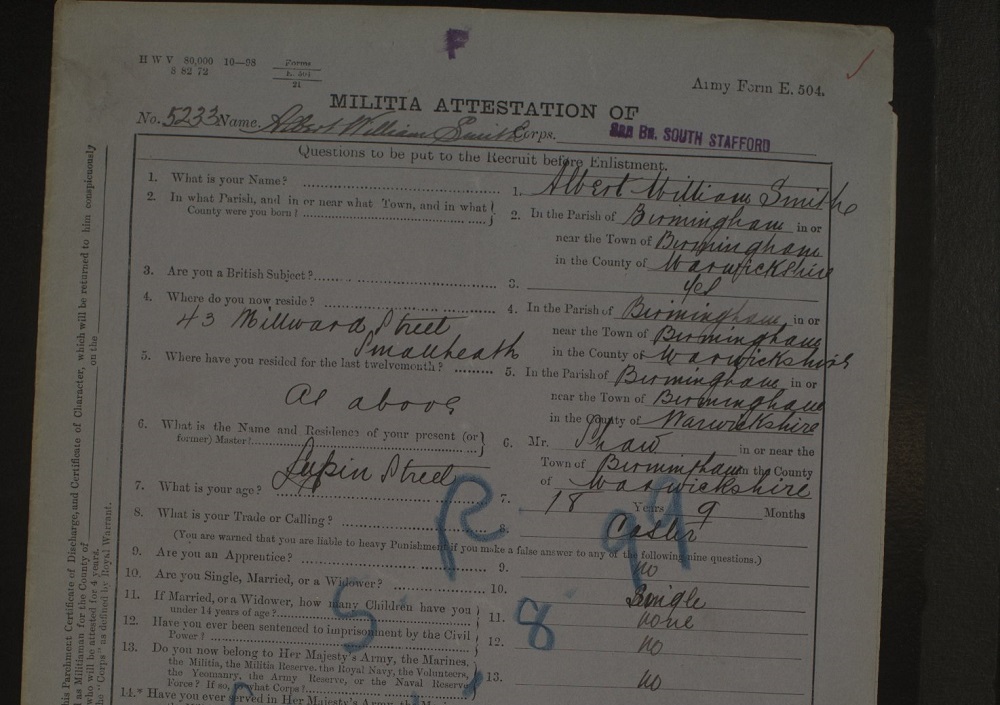 F
H W V 80,000 10—98 Forms
8 82 72 E. 504
21
Army Form E. 504.
MILITIA ATTESTATION OF
No. 5233 Name. Albert William Smith Corps. Bn. SOUTH STAFFORD
Questions to be put to the Recruit before Enlistment.
1. What is your Name? 1. Albert William Smith
2. In what Parish, and in or near what Town, and in what County were you born? 2. In the Parish of Birmingham in or
near the Town of Birmingham
in the County of Warwickshire
3. Are you a British Subject? 3. yes
4. Where do you now reside? 4. In the Parish of Birmingham in or
43 Millward Street near the Town of Birmingham
Smallheath in the County of Warwickshire
5. Where have you resided for the last twelvemonth? 5. In the Parish of Birmingham in or
near the Town of Birmingham
As above in the County of Warwickshire
6. What is the Name and Residence of your present (or former) Master? 6. Mr. Shaw in or near the
Town of Birmingham in the County
Lupin Street of Warwickshire
7. What is your age? 7. 18 Years 9 Months
8. What is your Trade or Calling? 8. Caster
(You are warned that you are liable to heavy Punishment if you make a false answer to any of the following nine questions.)
9. Are you an Apprentice? 9. no
10. Are you Single, Married, or a Widower? 10. Single
11. If Married, or a Widower, how many Children have you under 14 years of age? 11. none
12. Have you ever been sentenced to imprisonment by the Civil Power? 12. no
13. Do you now belong to Her Majesty's Army, the Marines, the Militia, the Militia Reserve, the Royal Navy, the Volunteers, the Yeomanry, the Army Reserve, or the Naval Reserve Force? If so, what Corps? 13. no
14.* Have you ever served in Her Majesty's Army, the
R 99
S 8
his Parchment Certificate of Discharge, and Certificate of Character, which will be returned to him conspicuously
as Militiaman for the County of on the
who will be attested for 4 years.
the "Corps" as defined by Royal Warrant.